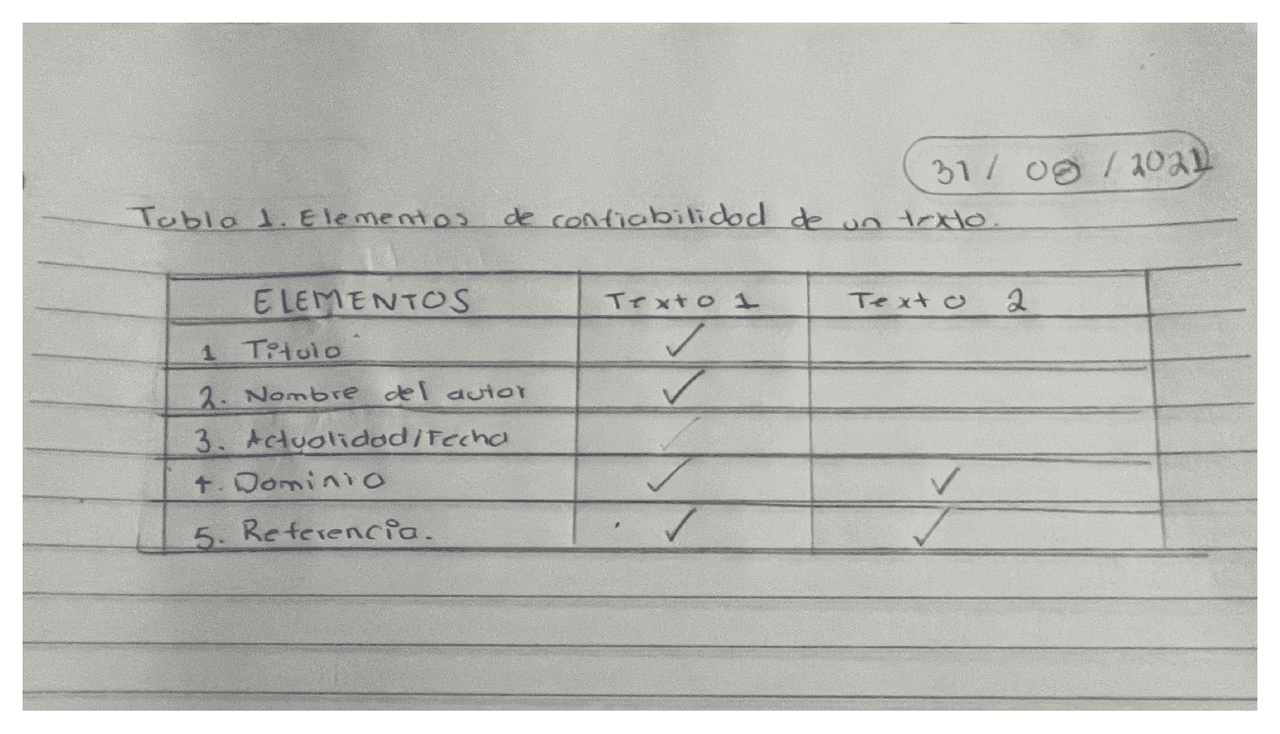 31 / 08 / 2021
Tabla 1. Elementos de confiabilidad de un texto.
ELEMENTOS Texto 1 Texto 2
1 Titulo ✓
2. Nombre del autor ✓
3. Actualidad/Fecha ✓
4. Dominio ✓ ✓
5. Referencia. ✓ ✓